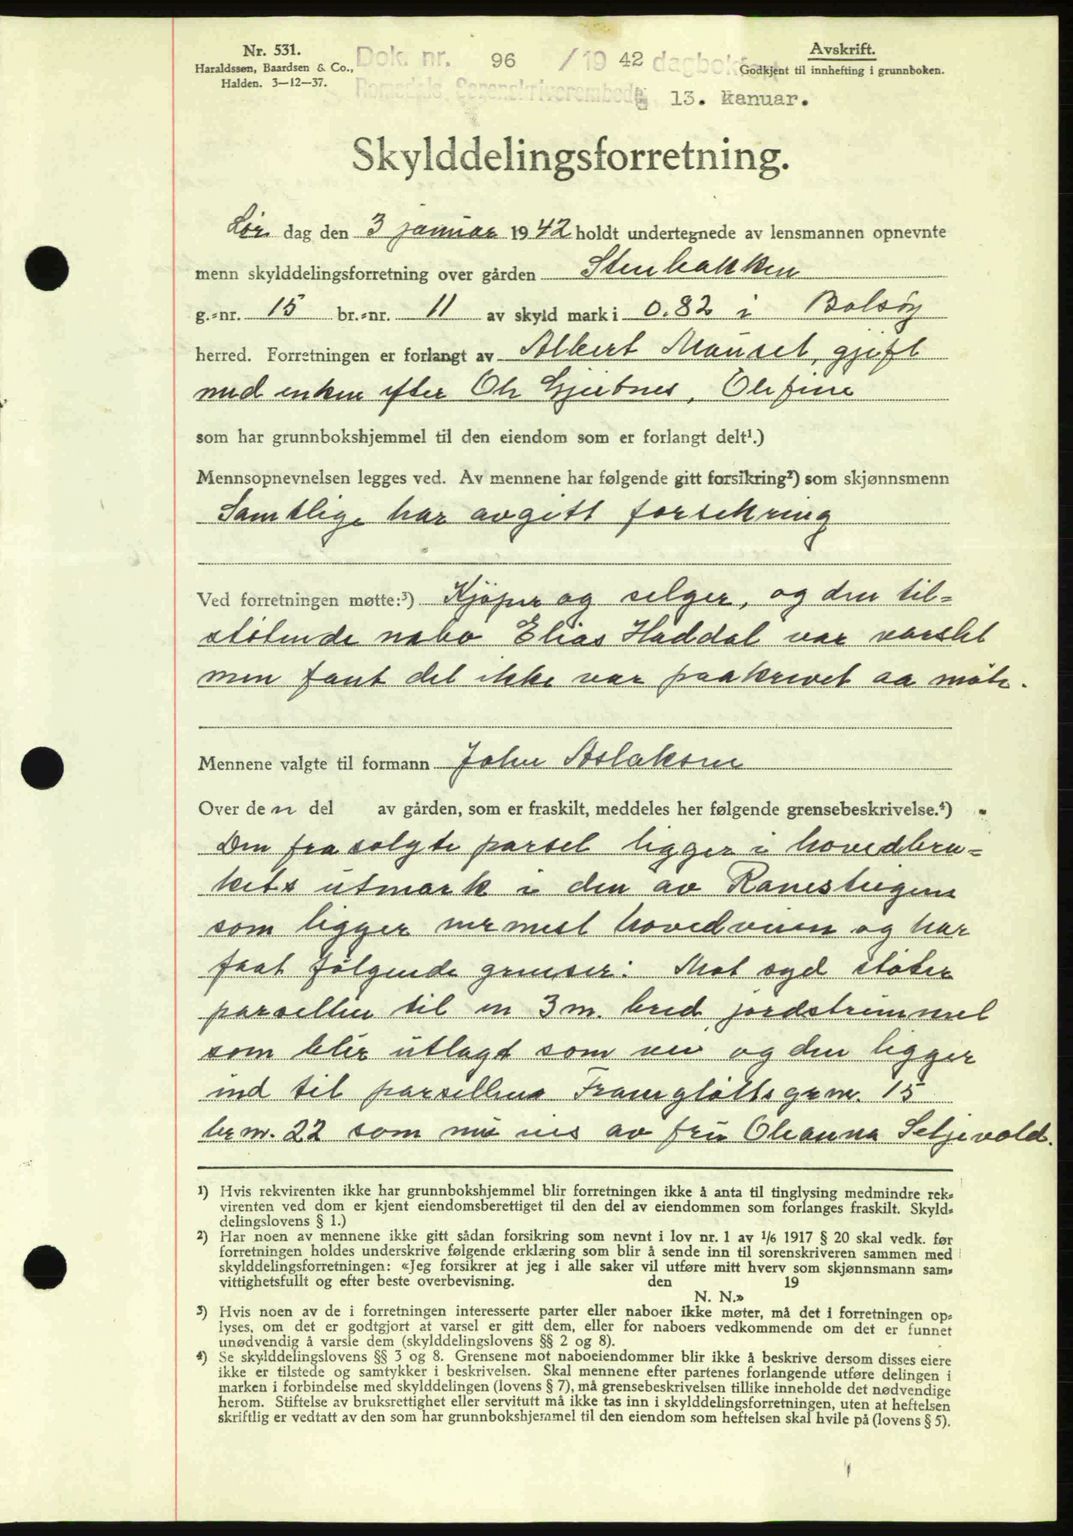 Nr. 531.
Haraldssøn, Baardsen & Co.,
Halden. 3—12—37.
Dok. nr. 96 /19 42 dagbokført
Romsdals Sorenskriverembede
13. kanuar.
Avskrift.
Godkjent til innhefting i grunnboken.
Skylddelingsforretning.
Lør dag den 3 januar 1942 holdt undertegnede av lensmannen opnevnte
menn skylddelingsforretning over gården Stenbakken
g.=nr. 15 br.=nr. 11 av skyld mark i 0.82 i Bolsøy
herred. Forretningen er forlangt av Albert Mauset, gjift
med enken efter Ole Gjeitnes, Olefine
som har grunnbokshjemmel til den eiendom som er forlangt delt¹.)
Mennsopnevnelsen legges ved. Av mennene har følgende gitt forsikring²) som skjønnsmenn
Samtlige har avgitt forsikring
Ved forretningen møtte:³) Kjøper og selger, og den til=
støtende nabo Elias Haddal var varslet
men fant det ikke var paakrevet aa møte.
Mennene valgte til formann John Aslaksen
Over de n del av gården, som er fraskilt, meddeles her følgende grensebeskrivelse.⁴)
Den frasolgte parsel ligger i hovedbru=
kets utmark i den av Ranesteigene
som ligger nermest hovedveien og har
faat følgende grenser: Mot syd støter
parsellen til en 3 m. bred jordstrimmel
som blir utlagt som vei og den ligger
ind til parsellens Framgløtts grnr. 15
br nr. 22 som nu eies av fru Oleanna Seljevold.
¹) Hvis rekvirenten ikke har grunnbokshjemmel blir forretningen ikke å anta til tinglysing medmindre rek=
virenten ved dom er kjent eiendomsberettiget til den del av eiendommen som forlanges fraskilt. Skyld=
delingslovens § 1.)
²) Har noen av mennene ikke gitt sådan forsikring som nevnt i lov nr. 1 av 1/6 1917 § 20 skal vedk. før
forretningen holdes underskrive følgende erklæring som blir å sende inn til sorenskriveren sammen med
skylddelingsforretningen: «Jeg forsikrer at jeg i alle saker vil utføre mitt hverv som skjønnsmann sam=
vittighetsfullt og efter beste overbevisning. den 19
N. N.»
³) Hvis noen av de i forretningen interesserte parter eller naboer ikke møter, må det i forretningen op=
lyses, om det er godtgjort at varsel er gitt dem, eller for naboers vedkommende om det er funnet
unødvendig å varsle dem (skylddelingslovens §§ 2 og 8).
⁴) Se skylddelingslovens §§ 3 og 8. Grensene mot naboeiendommer blir ikke å beskrive dersom disses eiere
ikke er tilstede og samtykker i beskrivelsen. Skal mennene efter partenes forlangende utføre delingen i
marken i forbindelse med skylddelingen (lovens § 7), må grensebeskrivelsen tillike inneholde det nødvendige
herom. Stiftelse av bruksrettighet eller servitutt må ikke tas inn i skylddelingsforretningen, uten at heftelsen
skriftlig er vedtatt av den som har grunnbokshjemmel til den eiendom som heftelsen skal hvile på (lovens § 5).